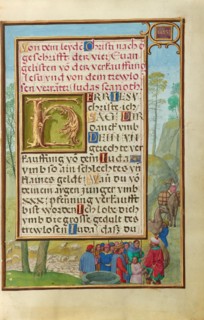 Von dem leyde Christi nach d
geschrifft der vier Euan
gelisten vo der verkauffung
Jesu vnd von dem trewlo
sen verräter Judas scaroth.
HERR IESV
christe ich
SAG DIR
danck vmb
DEIN VN
gerecht ver
kauffung vō dem Iuda
vmb so ain schlechtes ver
dinstes geldt Wan du vō
deinem aygen junger vmb
xxx pfenning verkaufft
bist worden Ich lobe dich
vmb die grosse gedult des
trewlosen Iuda das du